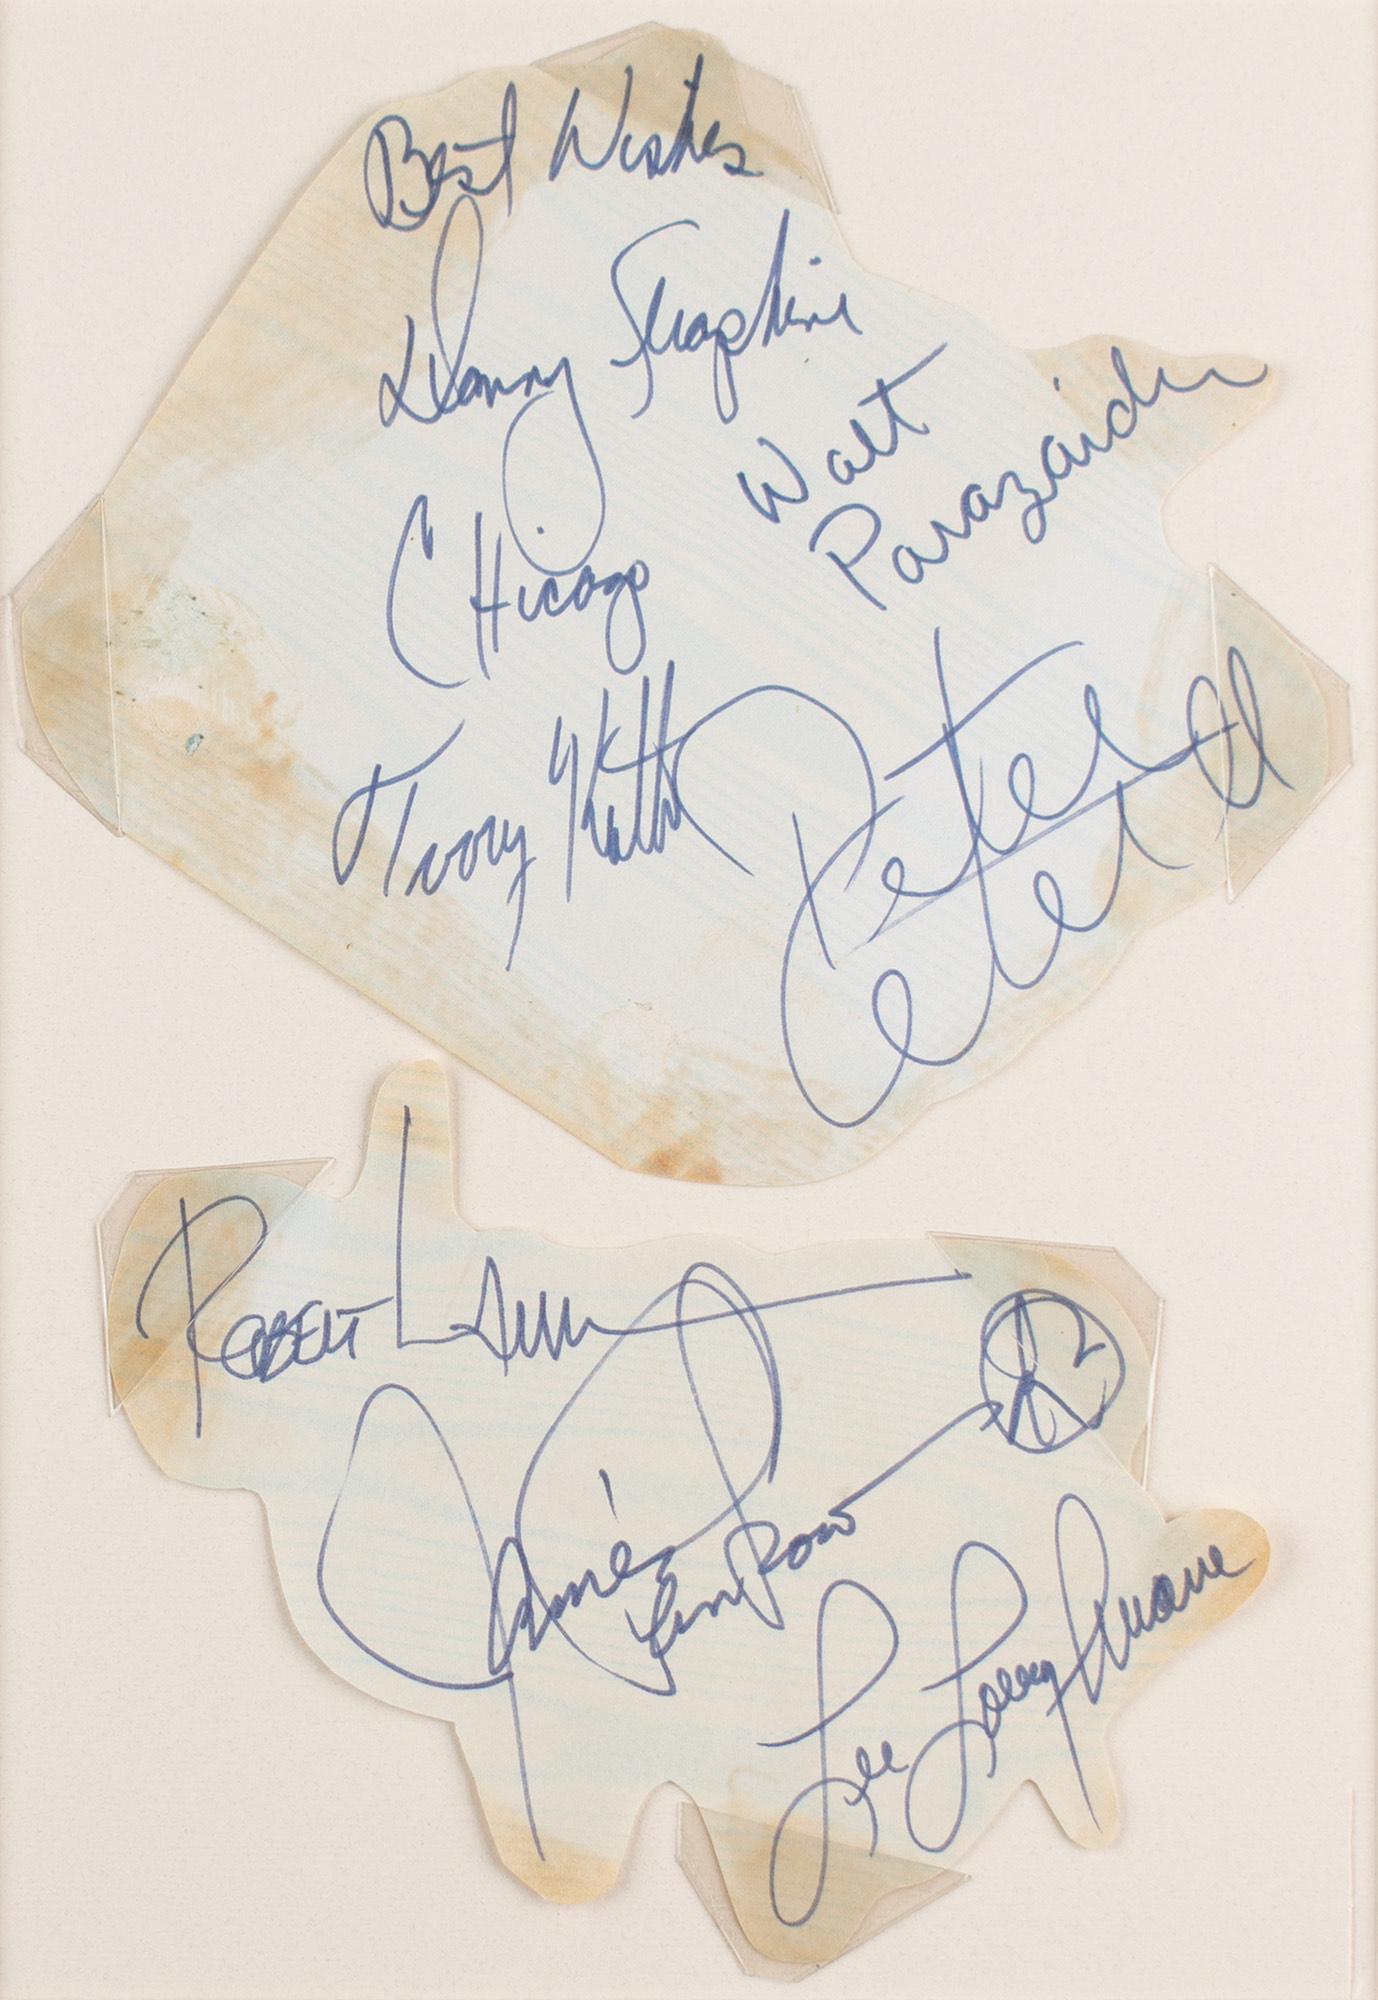 Best Wishes
Danny Seraphine
Walt
Parazaider
CHicago
Terry Kath
Peter
Cetera
Robert Lamm
James
Pankow
Lee Loughnane